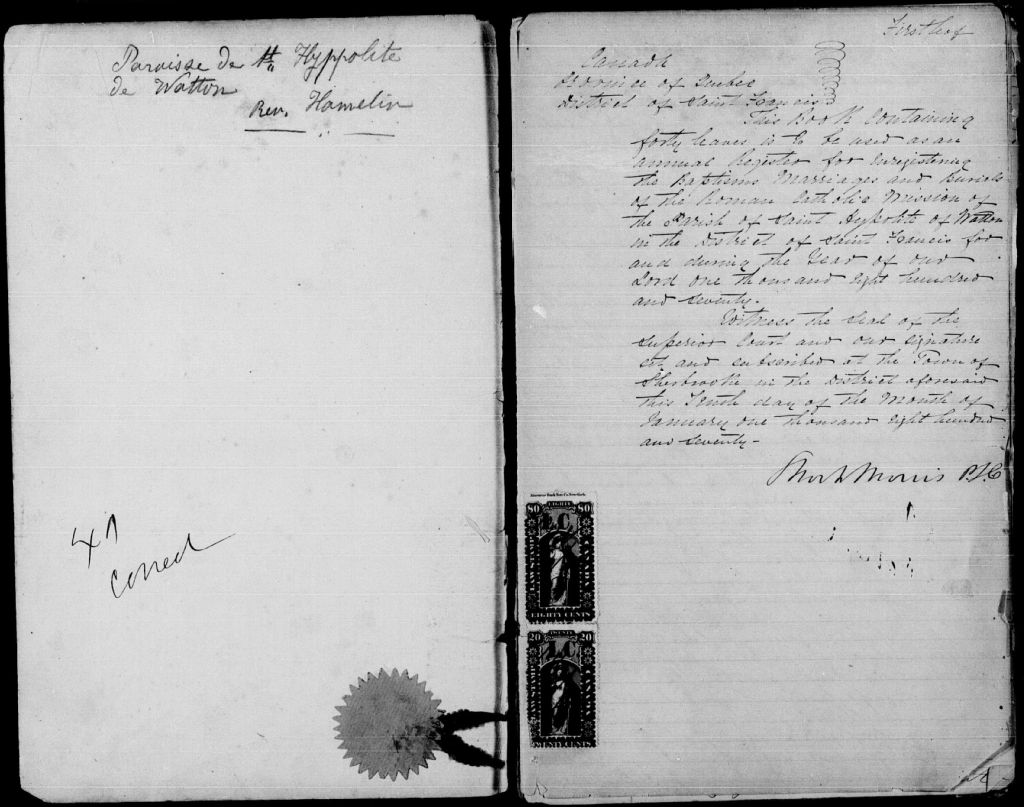 Paroisse de St Hyppolite
de Wotton
Rev. Hamelin
41
Correct
First leaf
Canada
Province of Quebec
District of Saint Francis
This Book Containing
forty leaves is to be used as an
annual Register for enregistering
the Baptisms Marriages and Burials
of the Roman Catholic Mission of
the Parish of Saint Hypolite of Wotton
in the District of Saint Francis for
and during the Year of our
Lord one thousand eight hundred
and seventy.
Witness the Seal of the
Superior Court and our signature
set and subscribed at the Town of
Sherbrooke in the District aforesaid
this Tenth day of the Month of
January one thousand eight hundred
and seventy -
Short Morris P.S.C
American Bank Note Co. New-York.
80 EIGHTY 80
L.C.
LAW STAMP
EIGHTY CENTS
20 TWENTY 20
L.C.
LAW STAMP
TWENTY CENTS